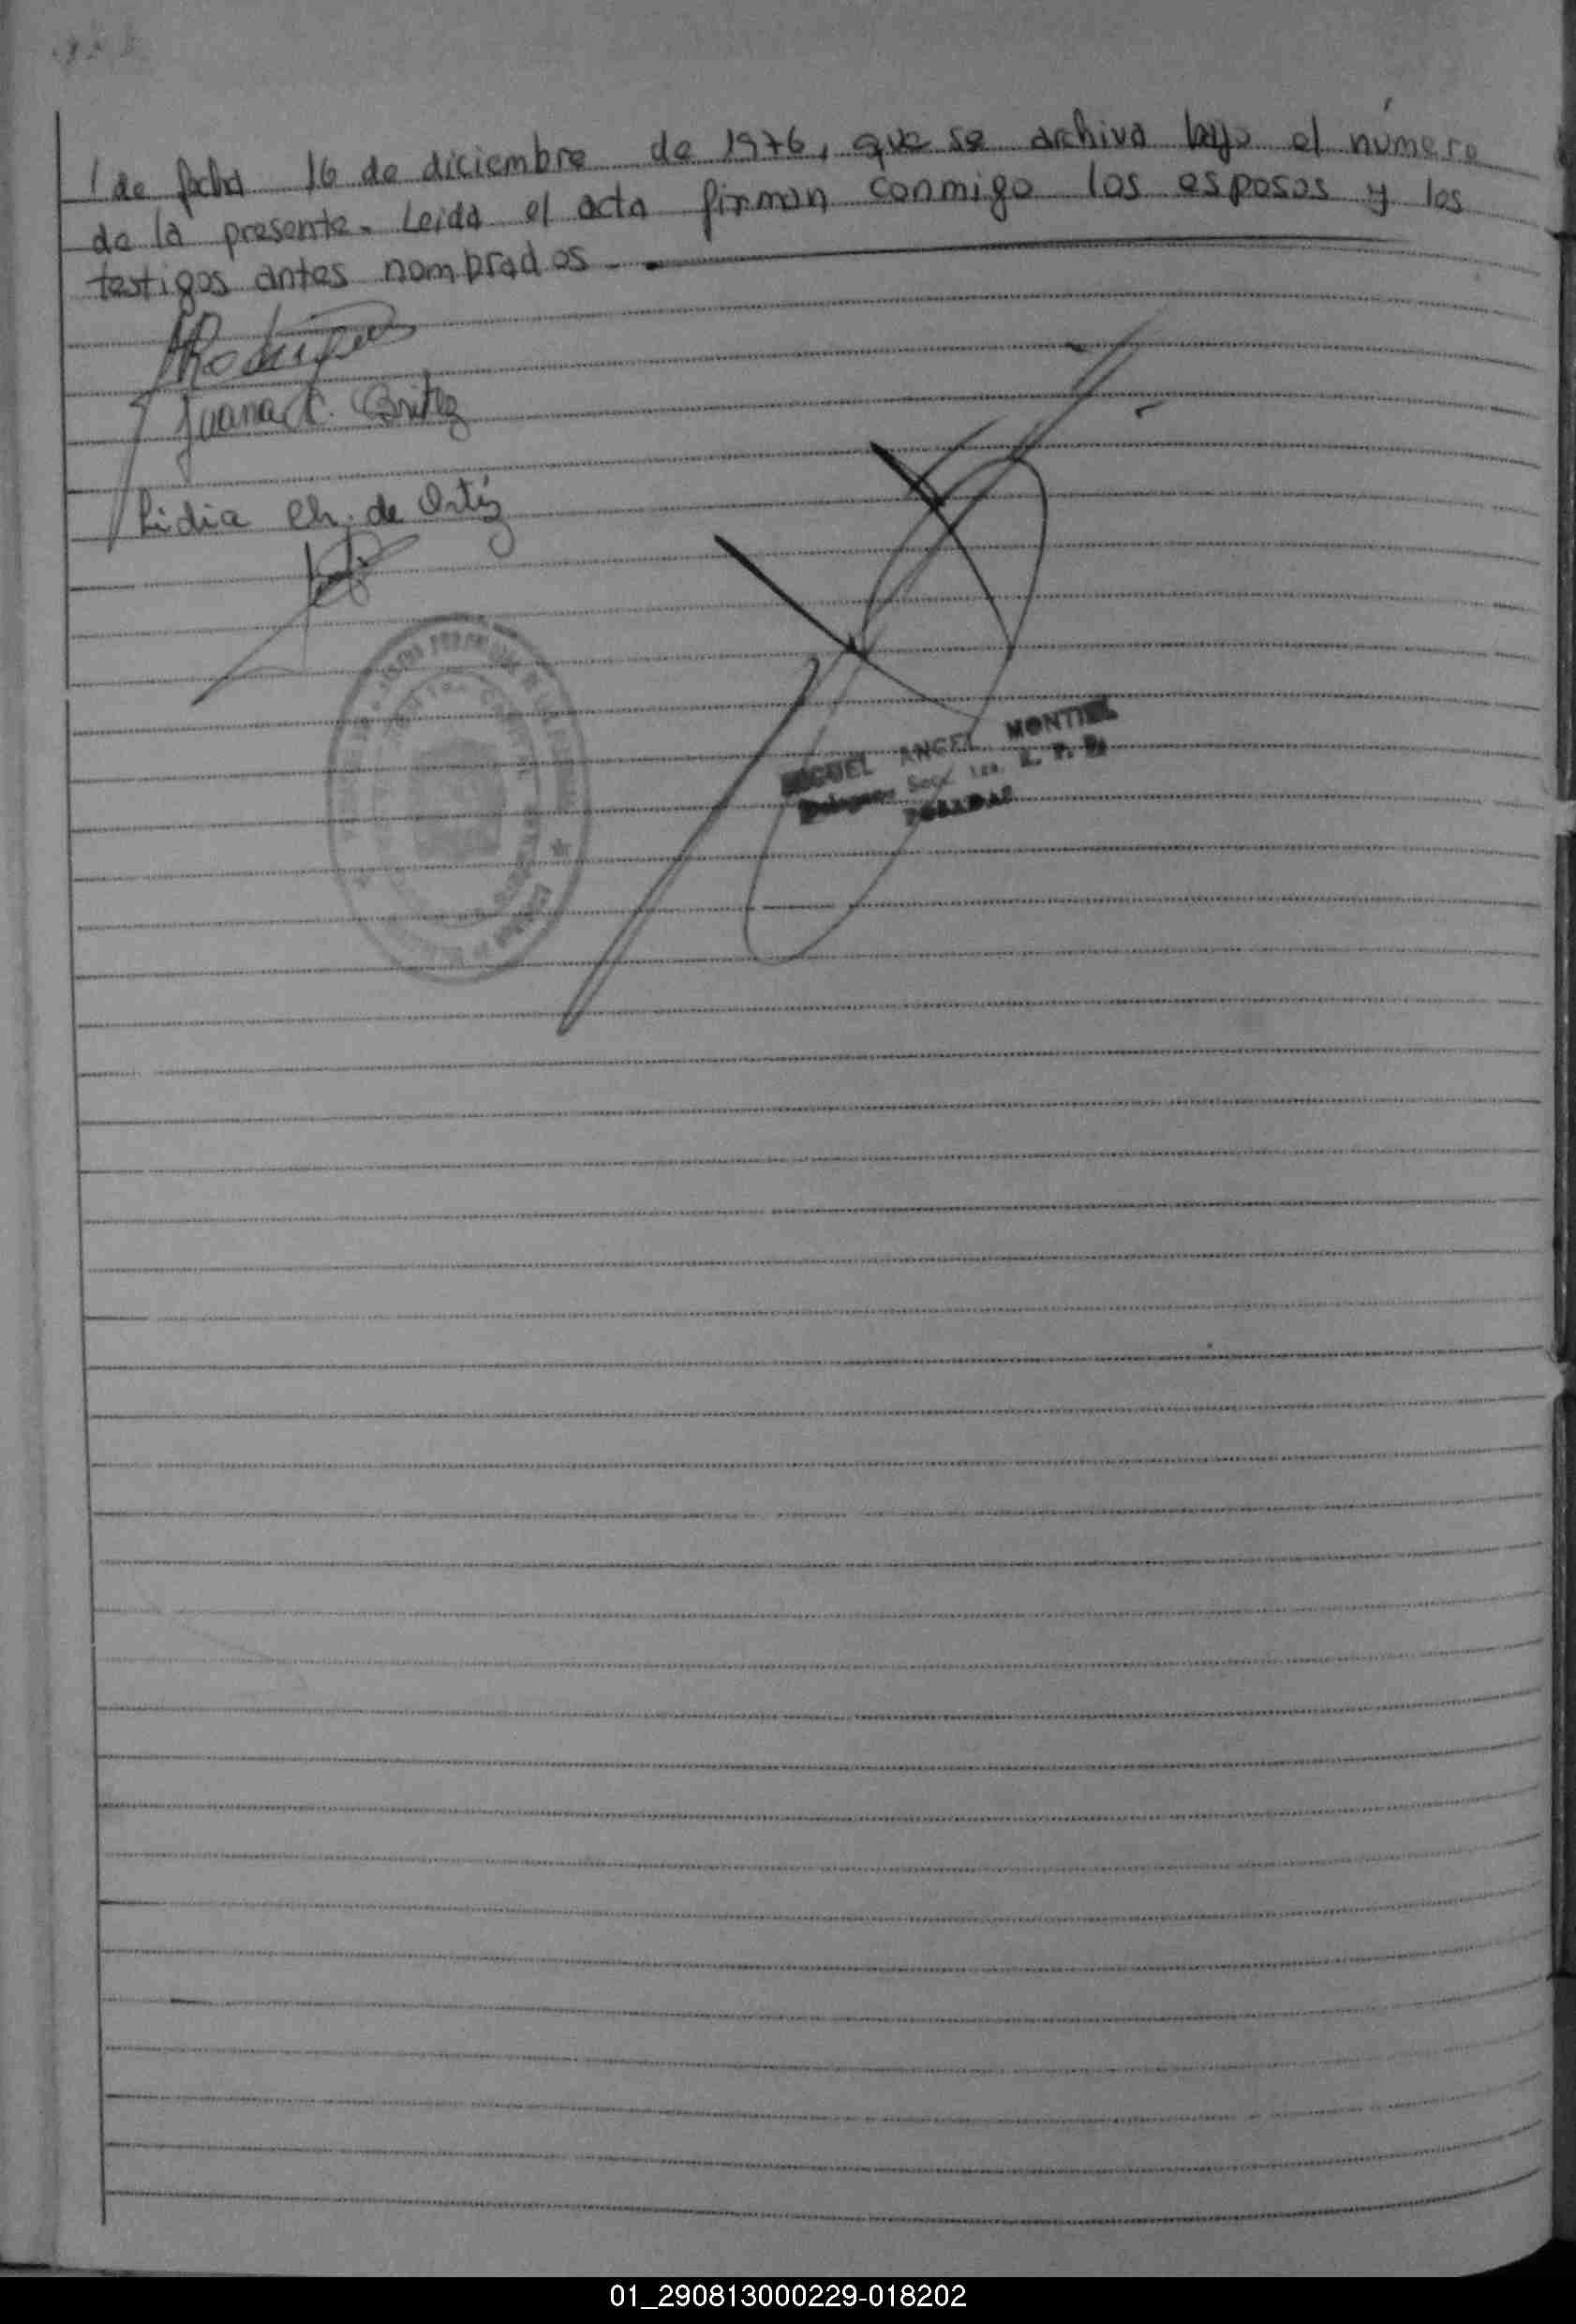 de fecha 16 de diciembre de 1976, que se archiva bajo el número
de la presente. Leida el acta firman conmigo los esposos y los
testigos antes nombrados.
Rodriguez
Juana C. Britez
Lidia Ch. de Ortíz
MIGUEL ANGEL MONTIEL
POSADAS
01_290813000229-018202